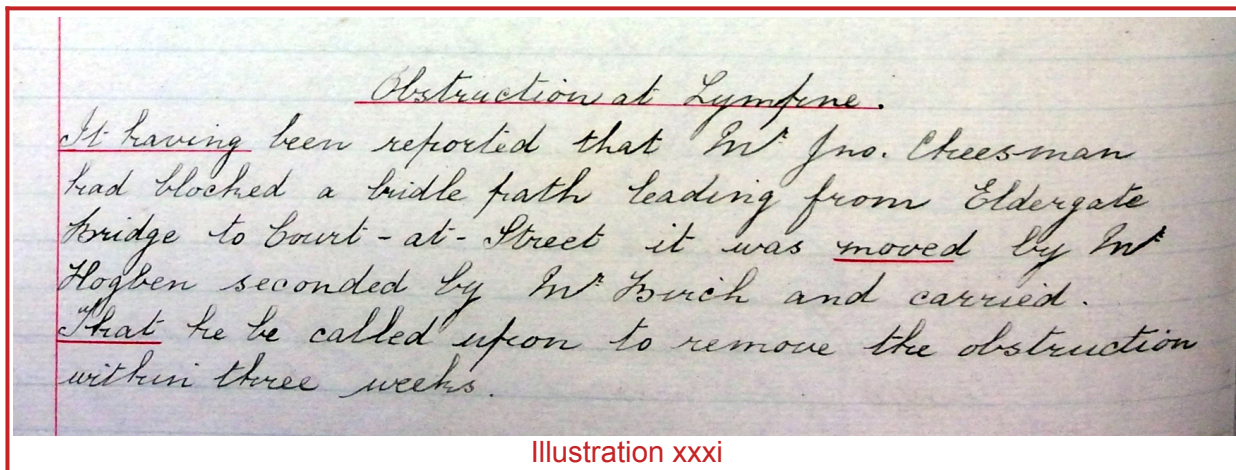 Obstruction at Lympne.
It having been reported that Mr Jno. Cheesman
had blocked a bridle path leading from Eldergate
Bridge to Court-at-Street it was moved by Mr
Hogben seconded by Mr Birch and carried.
"That he be called upon to remove the obstruction
within three weeks.
Illustration xxxi